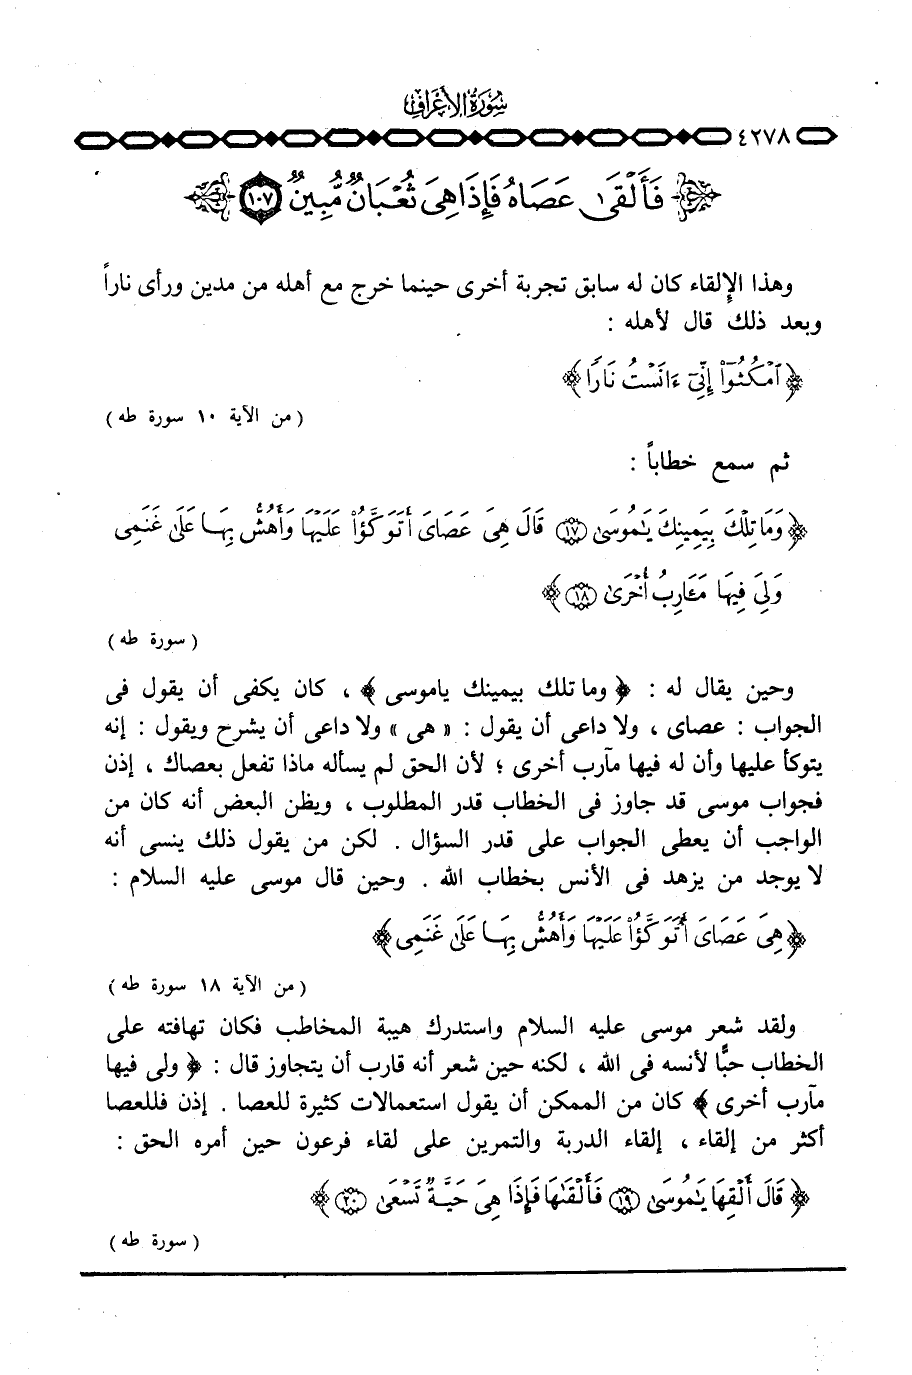 سُورَةُ الأَعْرَافِ
٤٢٧٨
فَأَلْقَىٰ عَصَاهُ فَإِذَا هِىَ ثُعْبَانٌ مُّبِينٌ ١٠٧
وهذا الإلقاء كان له سابق تجربة أخرى حينما خرج مع أهله من مدين ورأى ناراً
وبعد ذلك قال لأهله :
﴿ ٱمْكُثُوٓا۟ إِنِّىٓ ءَانَسْتُ نَارًا ﴾
( من الآية ١٠ سورة طه )
ثم سمع خطاباً :
﴿ وَمَا تِلْكَ بِيَمِينِكَ يَـٰمُوسَىٰ ١٧ قَالَ هِىَ عَصَاىَ أَتَوَكَّؤُا۟ عَلَيْهَا وَأَهُشُّ بِهَا عَلَىٰ غَنَمِى
وَلِىَ فِيهَا مَـَٔارِبُ أُخْرَىٰ ١٨ ﴾
( سورة طه )
وحين يقال له : ﴿ وما تلك بيمينك ياموسى ﴾ ، كان يكفى أن يقول فى
الجواب : عصاى ، ولا داعى أن يقول : « هى » ولا داعى أن يشرح ويقول : إنه
يتوكأ عليها وأن له فيها مآرب أخرى ؛ لأن الحق لم يسأله ماذا تفعل بعصاك ، إذن
فجواب موسى قد جاوز فى الخطاب قدر المطلوب ، ويظن البعض أنه كان من
الواجب أن يعطى الجواب على قدر السؤال . لكن من يقول ذلك ينسى أنه
لا يوجد من يزهد فى الأنس بخطاب الله . وحين قال موسى عليه السلام :
﴿ هِىَ عَصَاىَ أَتَوَكَّؤُا۟ عَلَيْهَا وَأَهُشُّ بِهَا عَلَىٰ غَنَمِى ﴾
( من الآية ١٨ سورة طه )
ولقد شعر موسى عليه السلام واستدرك هيبة المخاطب فكان تهافته على
الخطاب حبًّا لأنسه فى الله ، لكنه حين شعر أنه قارب أن يتجاوز قال : ﴿ ولى فيها
مآرب أخرى ﴾ كان من الممكن أن يقول استعمالات كثيرة للعصا . إذن فللعصا
أكثر من إلقاء ، إلقاء الدربة والتمرين على لقاء فرعون حين أمره الحق :
﴿ قَالَ أَلْقِهَا يَـٰمُوسَىٰ ١٩ فَأَلْقَىٰهَا فَإِذَا هِىَ حَيَّةٌ تَسْعَىٰ ٢٠ ﴾
( سورة طه )